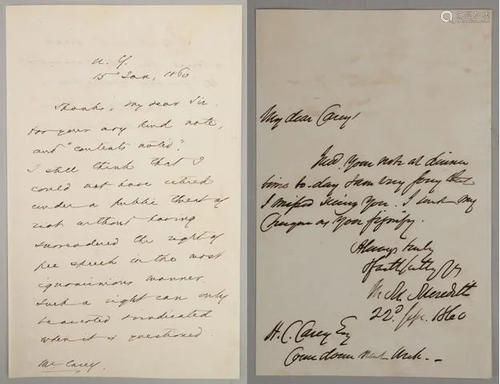 N. Y.
15 Jan, 1860
Thanks, my dear Sir.
for your very kind note,
and "contents noted".
I still think that I
could not have retired
under a public threat of
riot without having
surrendered the right of
free speech in the most
ignominious manner.
Such a right can only
be asserted & vindicated
when it is questioned.
Mr Carey.
My dear Carey,
your note at dinner
time to day I am very sorry that
I missed seeing you. I send my
as you signify.
Always truly
& faithfully Yr
Meredith
22d 1860
H. C. Carey Esq
Come down next Week.